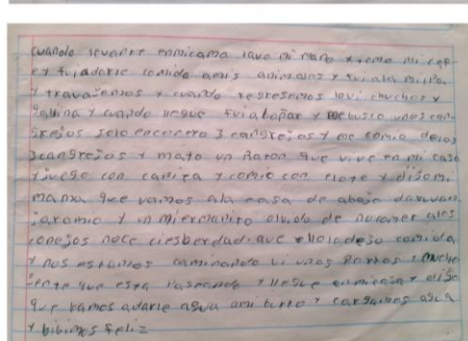 cuando levante enmicama lavo mi mano y tomo mi caf
e y fui adarle comida amis animales y fui ala milpa
y travajemos y cuando regresemos lovi chuchos y
gallina y cuando llegue fui abañar y me busco unos can
grejos solo encontro 3 cangrejos y me comio delos
3 cangrejos y mato un Raton que vive en mi casa
y juego con canica y comio con elote y dijo mi
mama que vamos ala casa de abajo
y mi ermanito olvido de no comer a los
conejos no comida
y nos estamos caminando vi unos Perros y mucho
jente que esta pasando y llegue en micasa y dijo
que vamos adarle agua ami burro y cargamos agua
y bibimos feliz